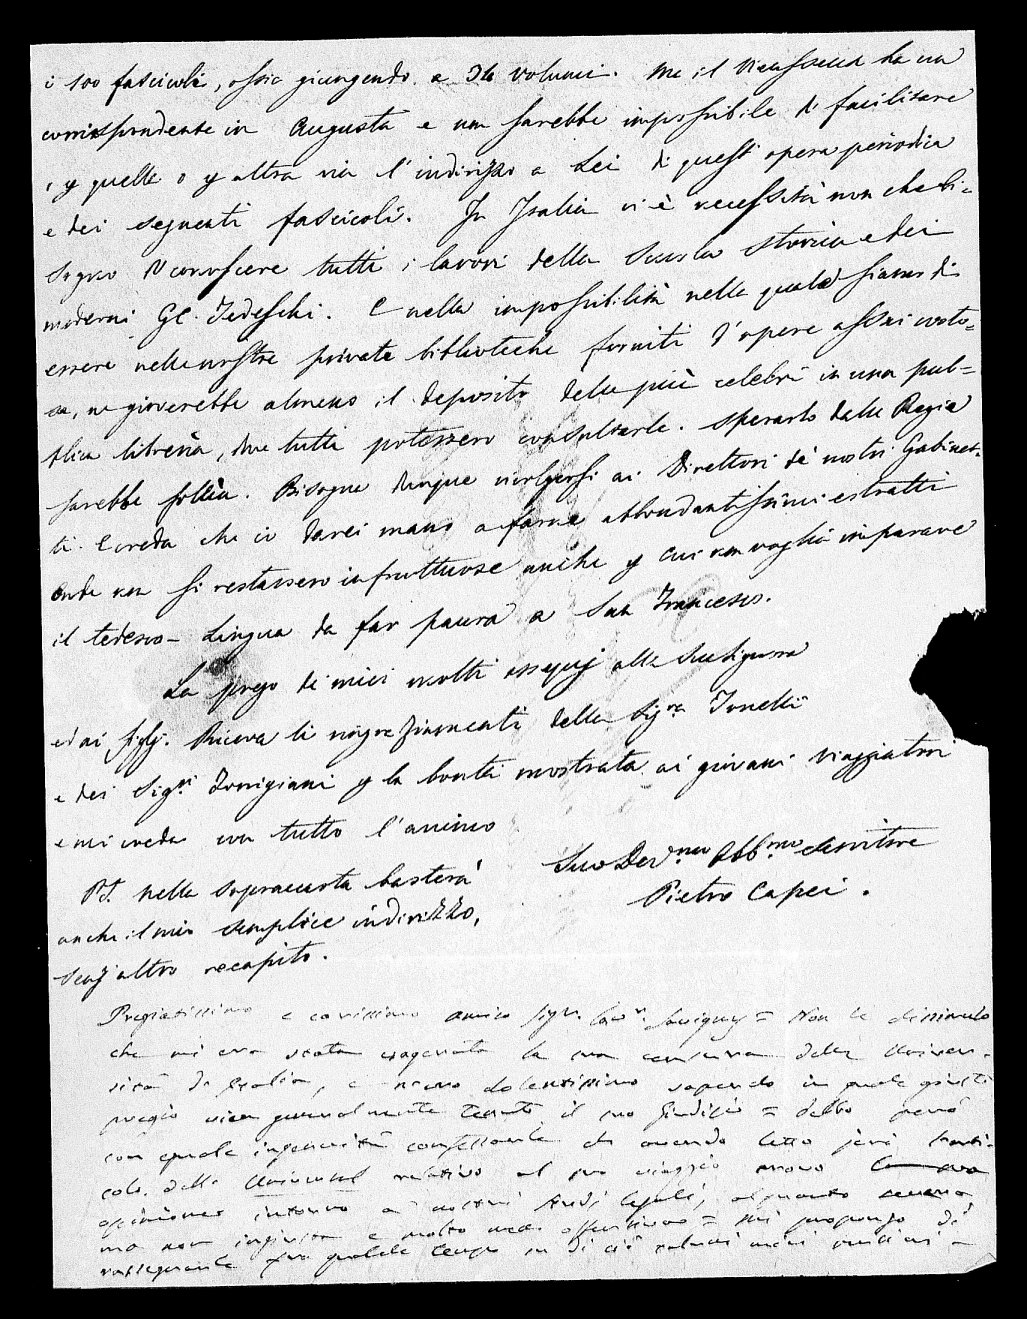 i 100 fascicoli, ossia giungendo a 34 volumi. Ma il Vieusseux ha un
corrispondente in Augusta e non sarebbe impossibile di facilitare
o p quella o p altra via l'indirizzo a Lei di quest'opera periodica
e dei seguenti fascicoli. In Italia vi è necessità non che bi=
sogno di conoscere tutti i lavori della Scuola storica e dei
moderni GC. Tedeschi. E nella impossibilità nella quale siamo di
essere nelle nostre private biblioteche forniti d'opere assai costo=
se, ne gioverebbe almeno il deposito delle più celebri in una pub=
blica libreria, ove tutti potessero consultarle. Sperarlo dalla Regia
sarebbe follia. Bisogna dunque rivolgersi ai Direttori de' nostri Gabinet=
ti. E creda che io darei mano a farne abbondantissimi estratti
onde non si restassero infruttuose anche p cui non voglia imparare
il tedesco - Lingua da far paura a San Francesco.
La prego di miei molti ossequj alla Sua Signora
ed ai figlj. Riceva li ringraziamenti della Sig.ra Tonelli
e dei Sig.ri Torrigiani p la bontà mostrata ai giovani viaggiatori
e mi creda con tutto l'animo
Suo Dev.mo Obb.mo Servitore
Pietro Capei.
PS. nella sopraccarta basterà
anche il mio semplice indirizzo,
senz'altro recapito.
Pregiatissimo e carissimo amico Sig.r Cav.r Savigny = Non le dissimulo
che mi era stata esagerata la sua censura delle Univer-
sità d'Italia, e n'ero dolentissimo sapendo in quale giusto
pregio vien generalmente tenuto il suo giudizio = debbo però
con eguale ingenuità confessarle che avendo letto jeri l'arti-
colo della relativo al suo viaggio trovo la sua
opinione intorno a' nostri studj legali, alquanto severa
ma non ingiusta e molto meno offensiva = Mi propongo di
rassegnarle fra qualche tempo su di ciò